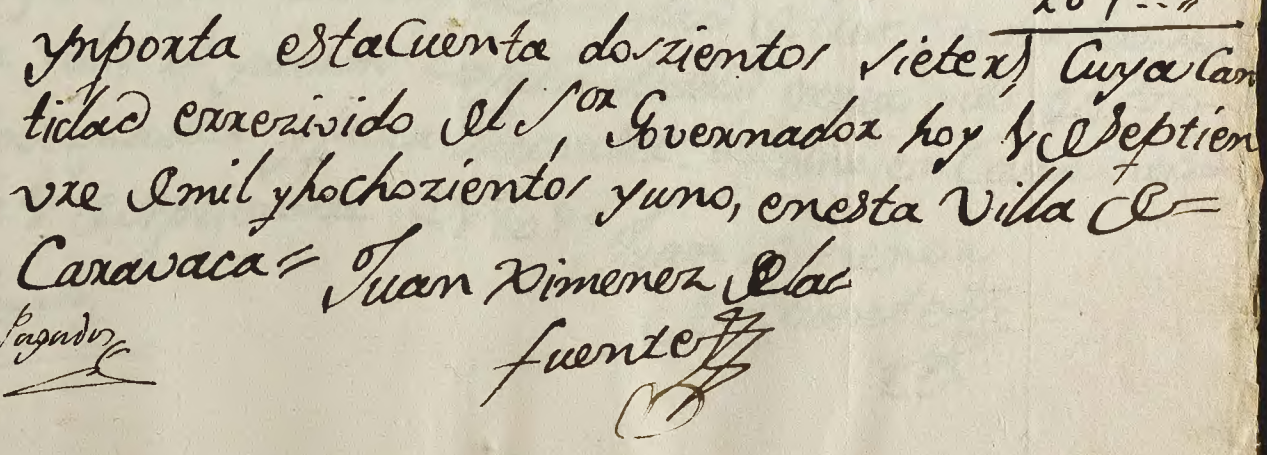 ynporta estaCuenta doszientos siete rs Cuya Can
tidad errezivido del Sor Governador hoy de Septien
vre de mil yhochozientos yuno, enesta Villa de=
Caravaca= Juan Ximenez dela=
fuente
Pagados